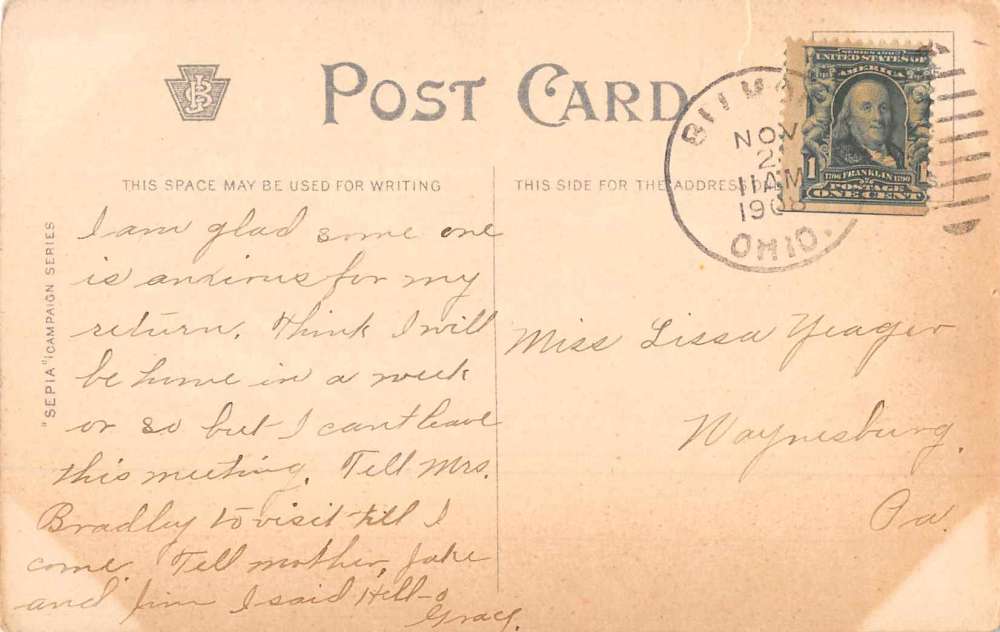 POST CARD
THIS SPACE MAY BE USED FOR WRITING
THIS SIDE FOR THE ADDRESS
"SEPIA" CAMPAIGN SERIES
NOV
2
11 AM
1908
OHIO.
SERIES 1902
UNITED STATES OF
AMERICA
1 1
1706 FRANKLIN 1790
POSTAGE
ONE CENT
I am glad some one
is anxious for my
return. Think I will
be home in a week
or so but I cant leave
this meeting. Tell Mrs.
Bradley to visit till I
come. Tell mother, Jake
and Jim I said Hell-o
Grace.
Miss Lissa Yeager
Waynesburg.
Pa.